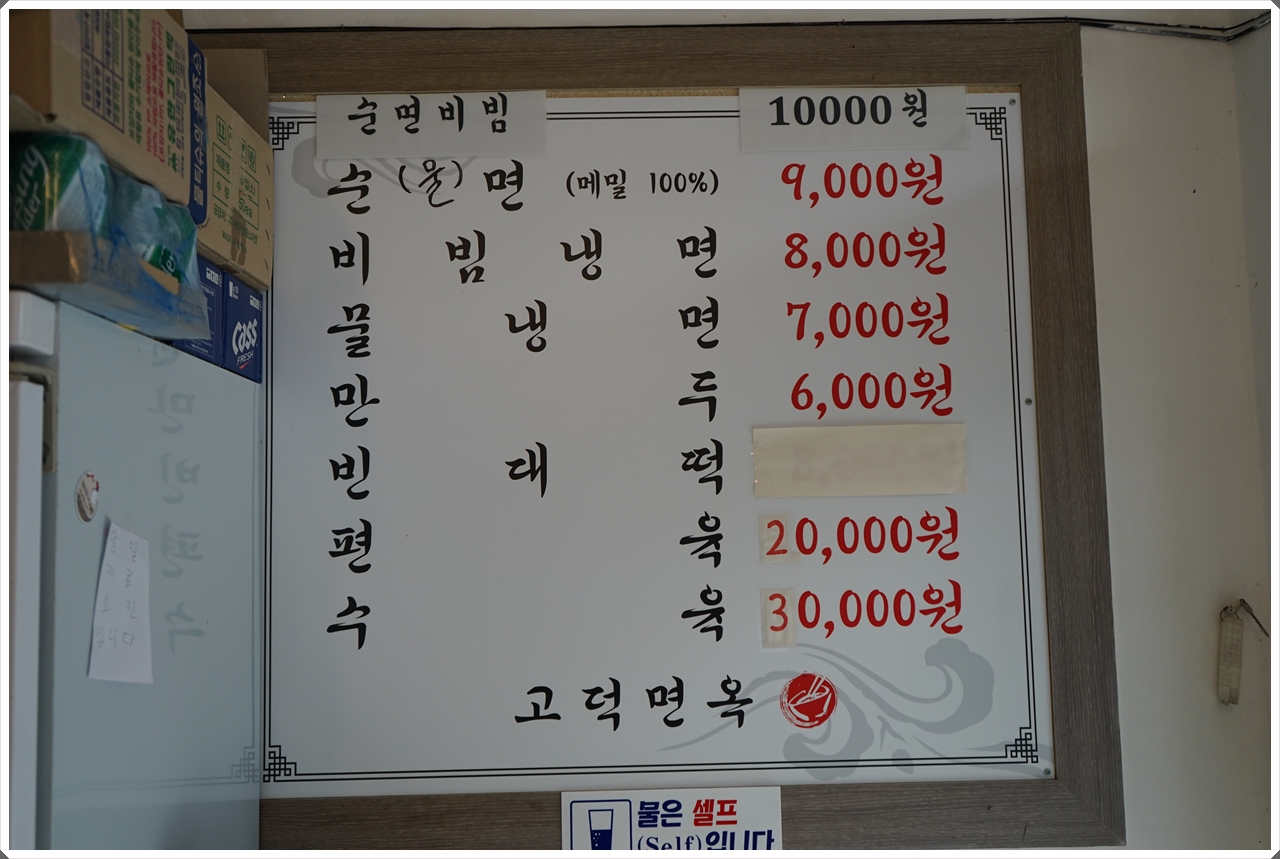 순면비빔 10000원
순(물)면 (메밀 100%) 9,000원
비빔냉면 8,000원
물냉면 7,000원
만두 6,000원
빈대떡
편육 20,000원
수육 30,000원
고덕면옥
물은 셀프
(Self)입니다
Cass
FRESH